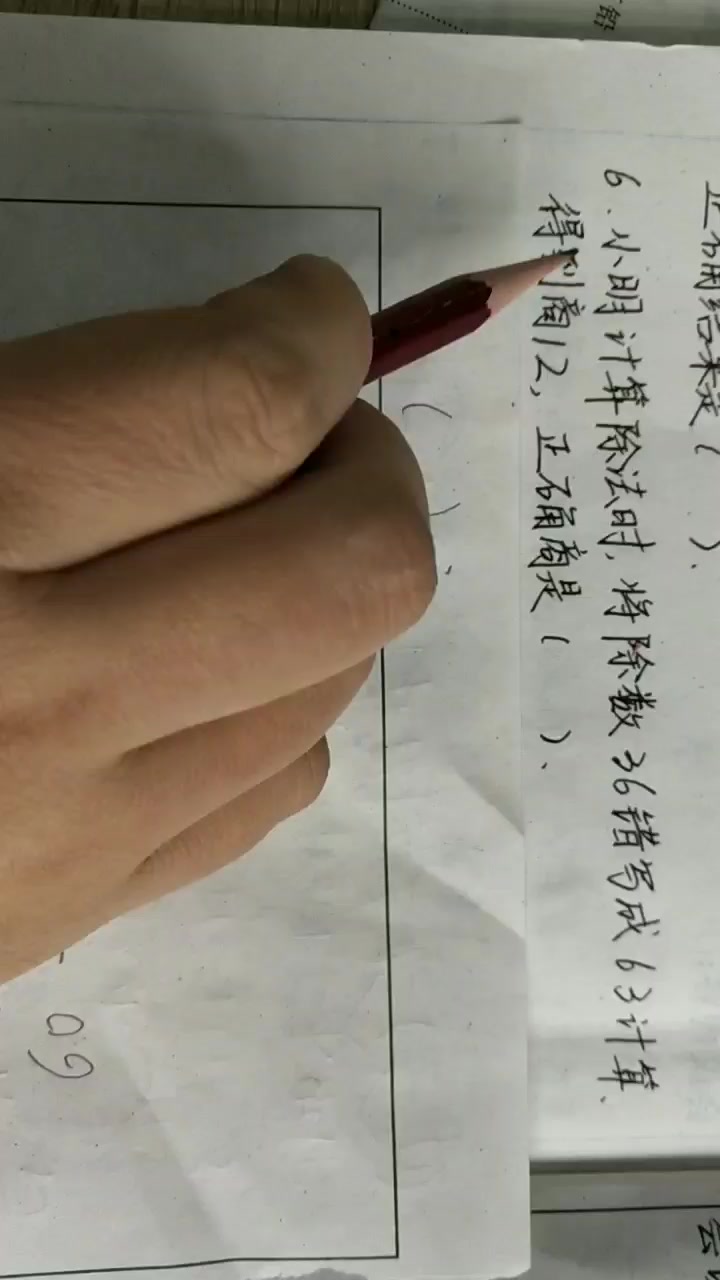 正确结果是(    ).
6.小明计算除法时,将除数36错写成63计算,
得到商12,正确商是(    ).
(    ).
60